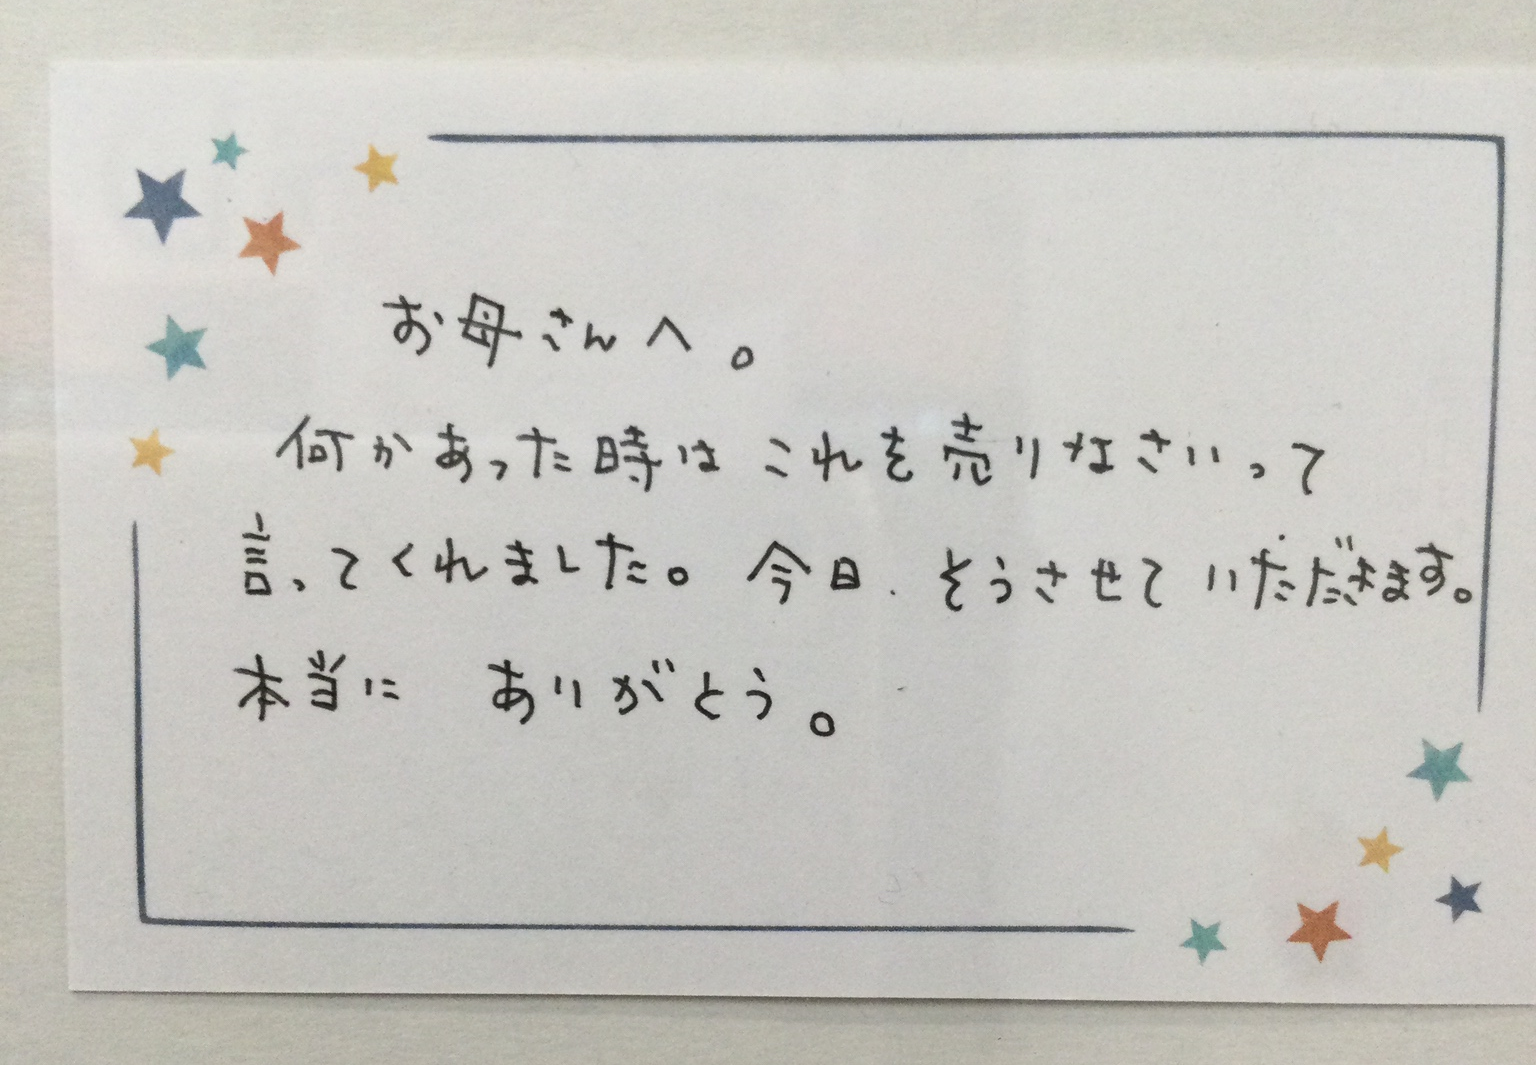 お母さんへ。
何かあった時はこれを売りなさいって
言ってくれました。今日、そうさせていただきます。
本当に ありがとう。